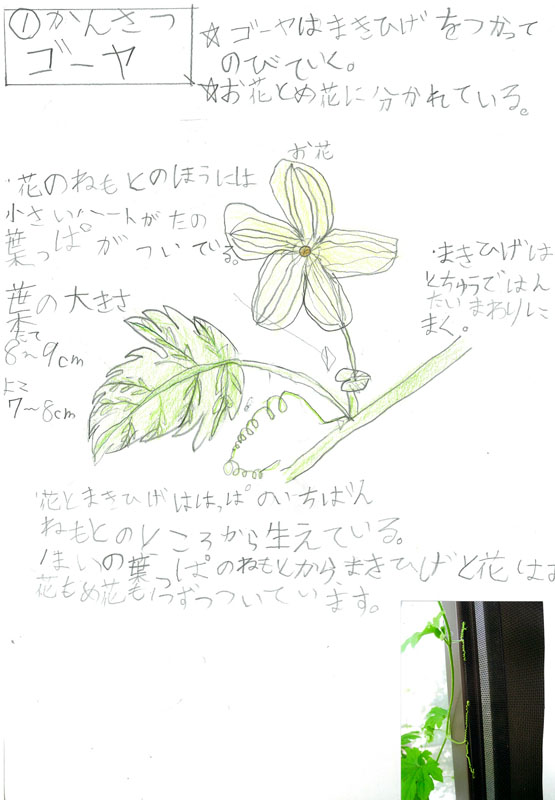 ①かんさつ
ゴーヤ
☆ゴーヤはまきひげをつかって
のびていく。
☆お花とめ花に分かれている。
お花
・花のねもとのほうには
小さいハートがたの
葉っぱがついている。
・まきひげは
とちゅうではん
たいまわりに
まく。
葉の大きさ
たて
8〜9cm
よこ
7〜8cm
・花とまきひげははっぱのいちばん
ねもとのところから生えている。
1まいの葉っぱのねもとから、まきひげと花はお
花もめ花も1つずつついています。